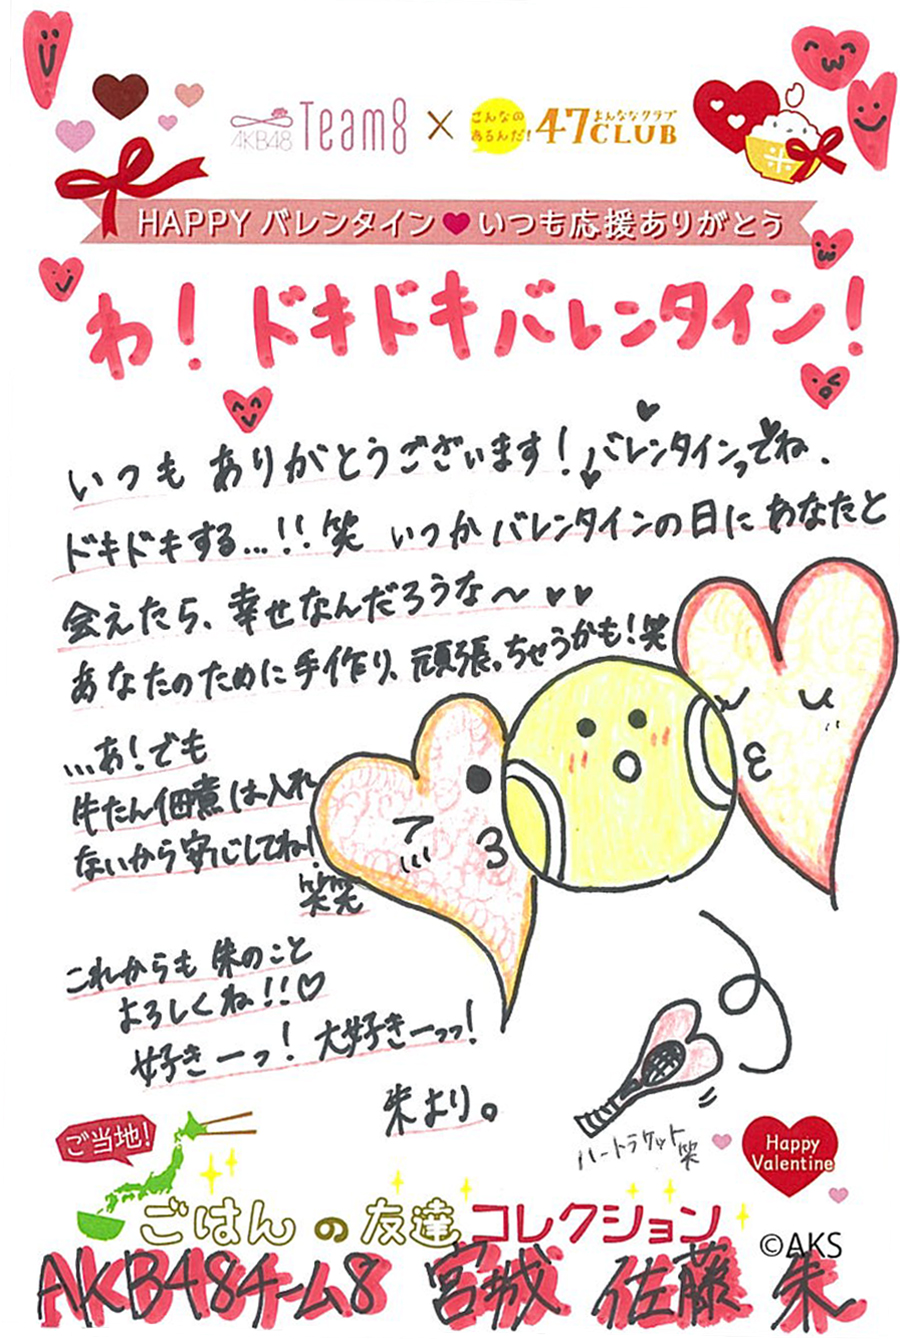 AKB48 Team8 × こんなのあるんだ! 47CLUB よんななクラブ
HAPPY バレンタイン♥いつも応援ありがとう
わ！ドキドキバレンタイン！
いつも ありがとうございます！バレンタインってね、
ドキドキする…!!笑 いつかバレンタインの日にあなたと
会えたら、幸せなんだろうな〜♥♥
あなたのために手作り、頑張っちゃうかも！笑
…あ！でも
牛たん佃煮は入れ
ないから安心してね！
笑笑
これからも 朱のこと
よろしくね!!♡
好きーっ！大好きーっっ！
朱より。
ハートラケット笑
ご当地!
Happy
Valentine
ごはんの友達コレクション
©AKS
AKB48チーム8 宮城 佐藤 朱